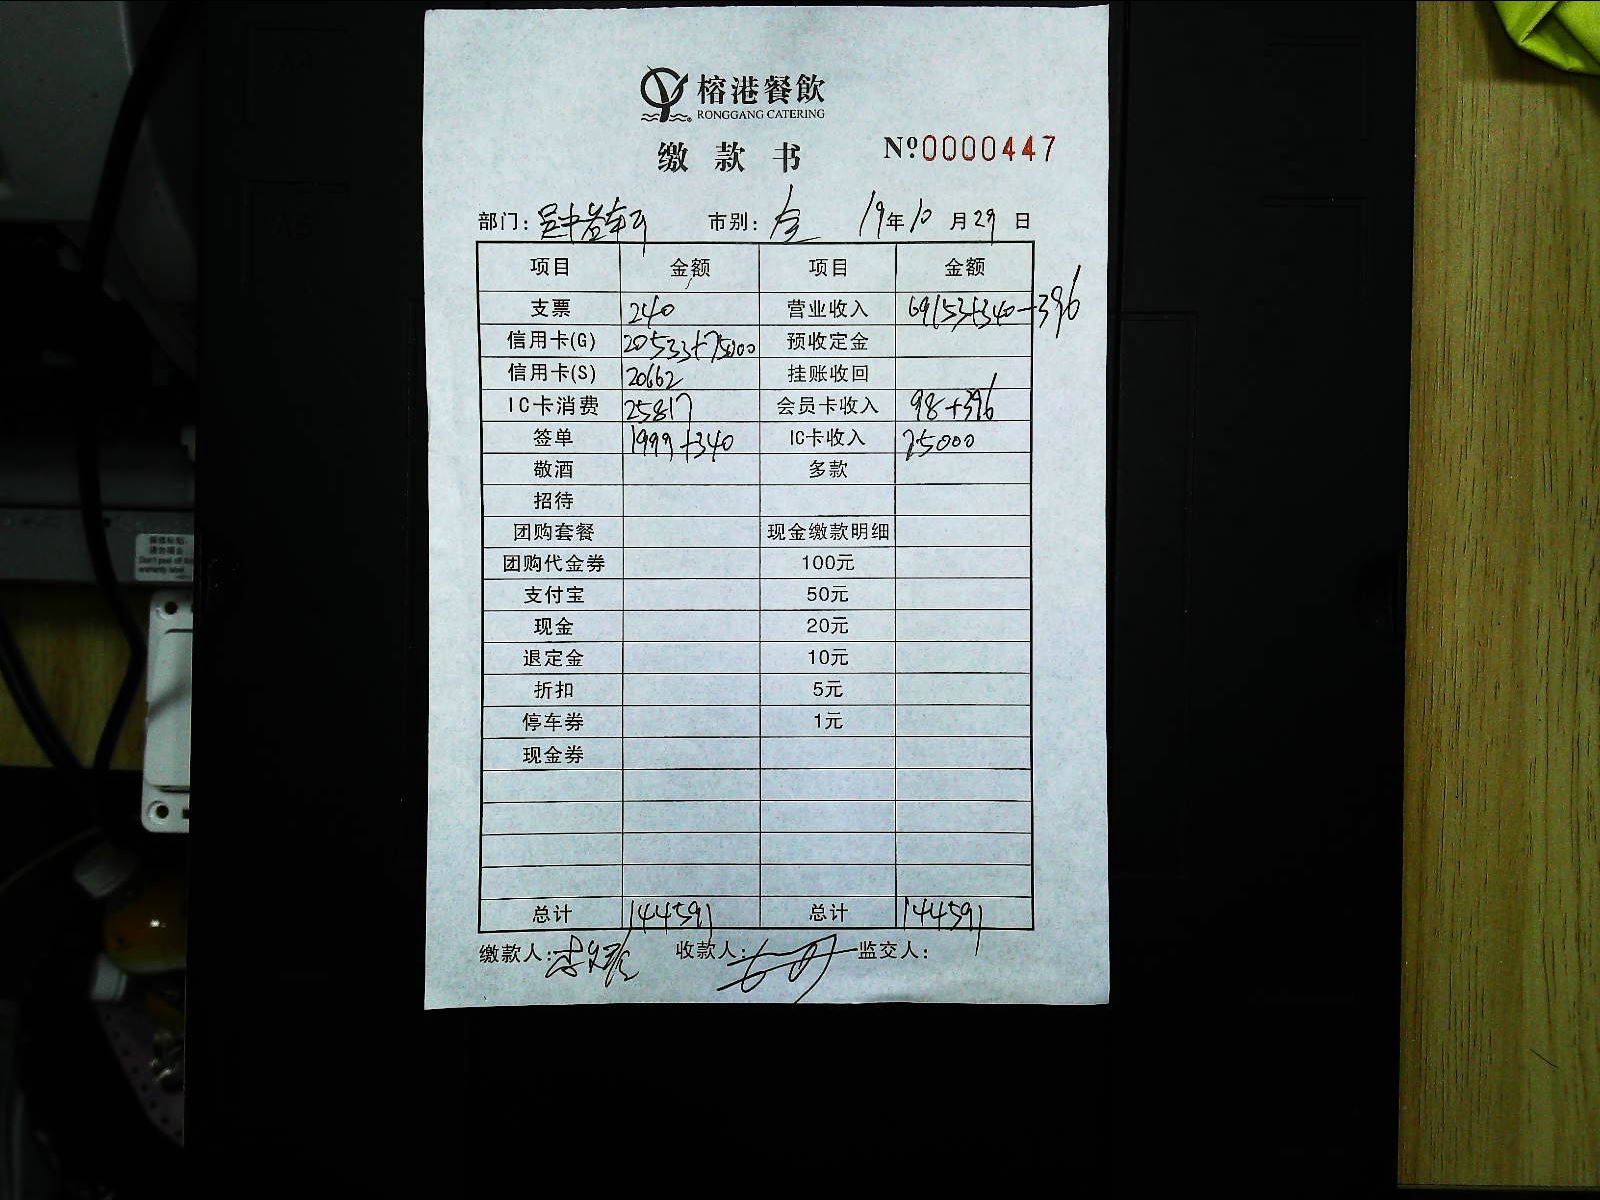 榕港餐飲
RONGGANG CATERING
缴款书
№0000447
部门: 吴中 市别: 全 19年10月29日
项目 金额 项目 金额
支票 240 营业收入 69153+340-396
信用卡(G) 20533+75000 预收定金
信用卡(S) 20662 挂账收回
IC卡消费 25817 会员卡收入 98+396
签单 1999+340 IC卡收入 75000
敬酒 多款
招待
团购套餐 现金缴款明细
团购代金券 100元
支付宝 50元
现金 20元
退定金 10元
折扣 5元
停车券 1元
现金券
总计 144591 总计 144591
缴款人: 收款人: 监交人:
A4
A5